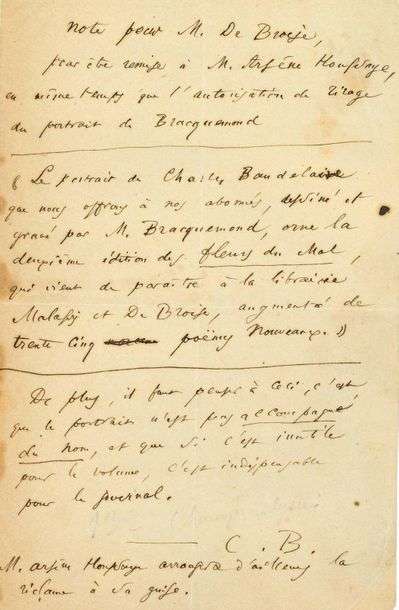 Note pour M. De Broise,
pour être remise à M. Arsène Houssaye,
en même temps que l'autorisation de tirage
du portrait de Bracquemond
« Le portrait de Charles Baudelaire
que nous offrons à nos abonnés, dessiné et
gravé par M. Bracquemond, orne la
deuxième édition des fleurs du Mal,
qui vient de paraître à la librairie
Malassis et De Broise, augmenté de
trente cinq poëmes nouveaux. »
De plus, il faut penser à ceci, c'est
que le portrait n'est pas accompagné
du nom, et que si c'est inutile
pour le volume, c'est indispensable
pour le journal.
C. B.
M. Arsène Houssaye arrangera d'ailleurs la
réclame à sa guise.